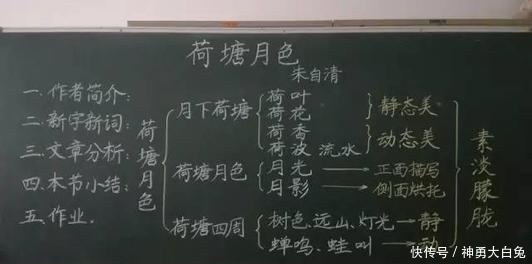 荷塘月色
朱自清
一.作者简介:
二.新字新词:
三.文章分析:
四.本节小结:
五.作业.
荷塘月色
月下荷塘
荷叶
荷花
荷香
荷波 流水
静态美
动态美
荷塘月色
月光 正面描写
月影 侧面烘托
荷塘四周
树色、远山、灯光 静
蝉鸣、蛙叫 动
素淡朦胧
快传号/神勇大白兔